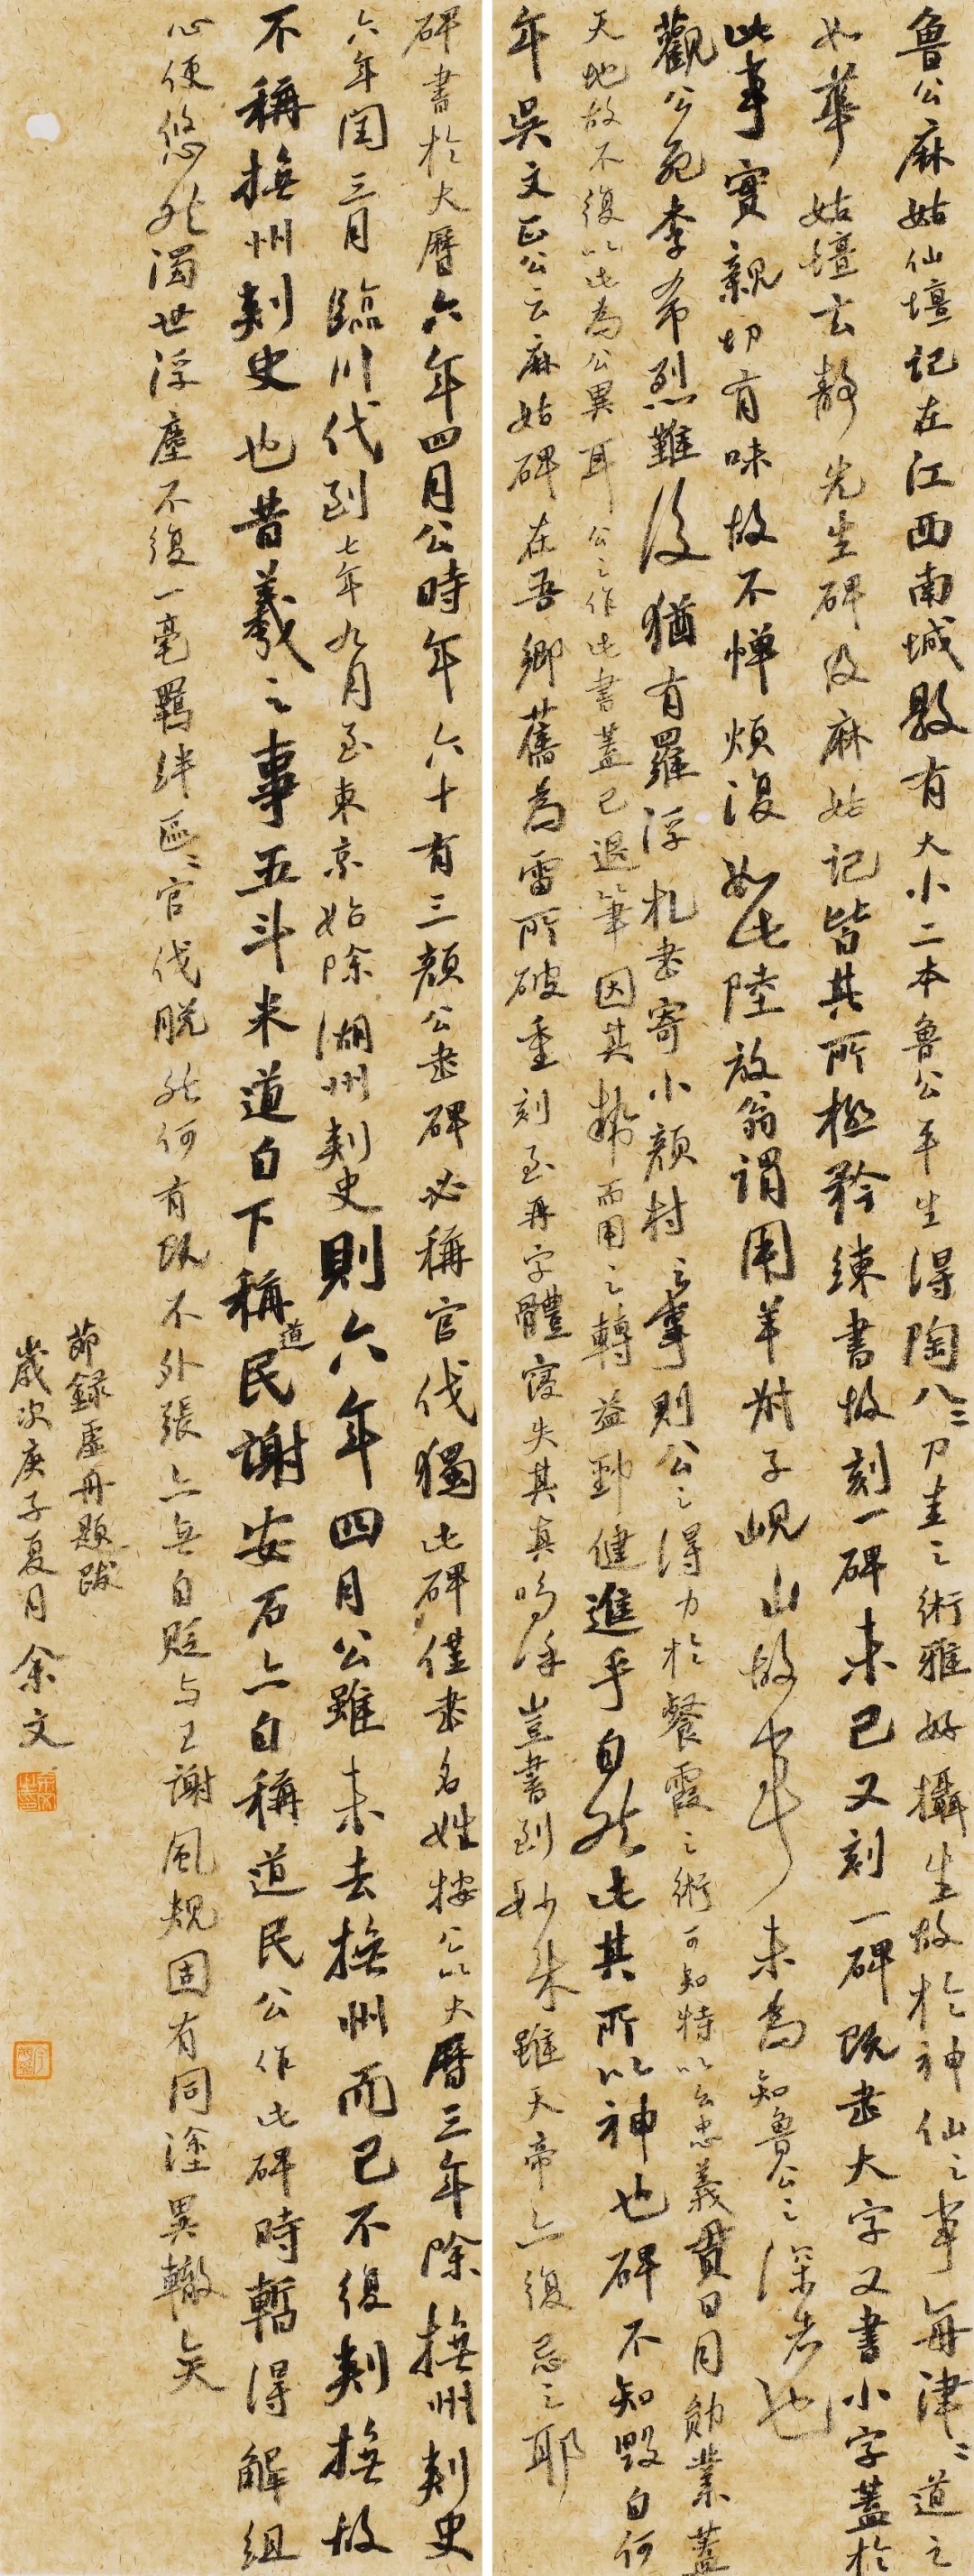 魯公麻姑仙壇記在江西南城縣有大小二本魯公平生得陶八八刀圭之術雅好攝生故於神仙之事每津津道之
如華姑壇去靜先生碑及麻姑記皆其所極矜練書故刻一碑未已又刻一碑既書大字又書小字蓋於
此事實親切有味故不憚煩復如此陸放翁謂用羊叔子峴山故事未為知魯公之深者也
觀公死李希烈難後猶有羅浮札書寄小顏村之事則公之得力於餐霞之術可知特以公忠義貫日月勛業蓋
天地故不復以此為公異耳公之作此書蓋已退筆因其勢而用之轉益勁健進乎自然此其所以神也碑不知毀自何
年吳文正公云麻姑碑在吾鄉舊為雷所破重刻至再字體寖失其真嗚乎豈書到妙來雖天帝亦復忌之耶
碑書於大曆六年四月公時年六十有三顏公書碑必稱官伐獨此碑僅書名姓按公以大曆三年除撫州刺史
六年閏三月臨川代到七年九月至東京始除湖州刺史則六年四月公雖未去撫州而已不復刺撫故
不稱撫州刺史也昔羲之事五斗米道自下稱道民謝安石亦自稱道民公作此碑時暫得解組
心便悠然濁世浮塵不復一毫羈絆區區官伐脫然何有既不外張亦無自貶与王謝風規固有同塗異轍矣
節錄虛舟題跋
歲次庚子夏月余文